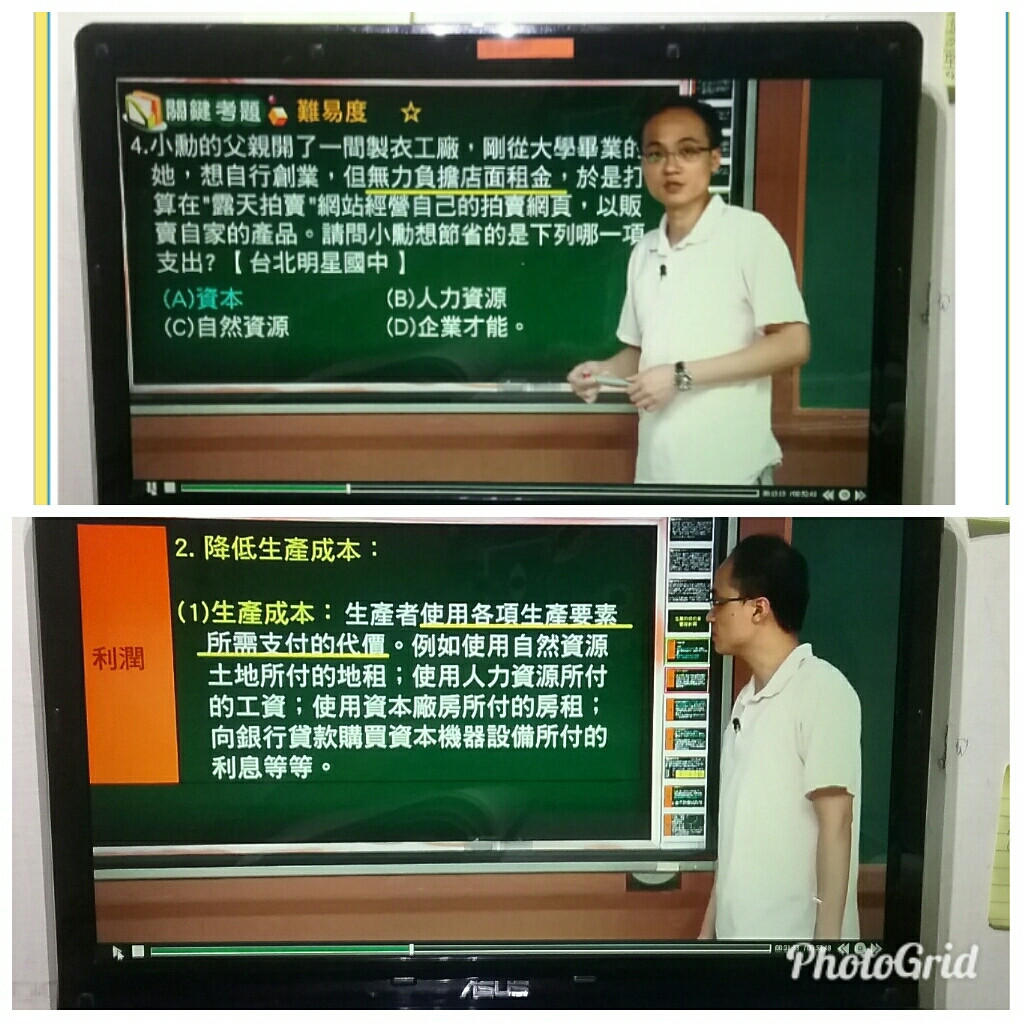 關鍵考題 難易度 ☆
4.小勳的父親開了一間製衣工廠，剛從大學畢業的
她，想自行創業，但無力負擔店面租金，於是打
算在"露天拍賣"網站經營自己的拍賣網頁，以販
賣自家的產品。請問小勳想節省的是下列哪一項
支出?【台北明星國中】
(A)資本 (B)人力資源
(C)自然資源 (D)企業才能。
利潤
2. 降低生產成本：
(1)生產成本：生產者使用各項生產要素
所需支付的代價。例如使用自然資源
土地所付的地租；使用人力資源所付
的工資；使用資本廠房所付的房租；
向銀行貸款購買資本機器設備所付的
利息等等。
ASUS
PhotoGrid